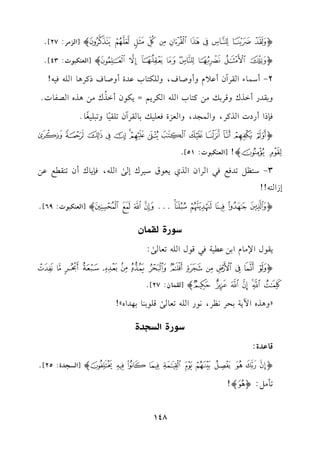 ﴿وَلَقَدْ ضَرَبْنَا لِلنَّاسِ فِي هَٰذَا الْقُرْآنِ مِن كُلِّ مَثَلٍ لَّعَلَّهُمْ يَتَذَكَّرُونَ﴾ [الزمر: ٢٧].
﴿وَتِلْكَ الْأَمْثَالُ نَضْرِبُهَا لِلنَّاسِ وَمَا يَعْقِلُهَا إِلَّا الْعَالِمُونَ﴾ [العنكبوت: ٤٣].
٢- أسماء القرآن أعلام وأوصاف، وللكتاب عدة أوصاف ذكرها الله فيه!
وبقدر أخذك وقربك من كتاب الله الكريم = يكون أخذُك من هذه الصفات.
فإذا أردت الذكر، والمجد، والعزة فعليك بالقرآن تلقيًا وتبليغًا.
﴿أَوَلَمْ يَكْفِهِمْ أَنَّا أَنزَلْنَا عَلَيْكَ الْكِتَابَ يُتْلَىٰ عَلَيْهِمْ إِنَّ فِي ذَٰلِكَ لَرَحْمَةً وَذِكْرَىٰ
لِقَوْمٍ يُؤْمِنُونَ﴾! [العنكبوت: ٥١].
٣- ستظل تدفع في الران الذي يعوق سيرك إلىٰ الله، فإياك أن تنقطع عن
إزالته!!
﴿وَالَّذِينَ جَاهَدُوا فِينَا لَنَهْدِيَنَّهُمْ سُبُلَنَا ... وَإِنَّ اللَّهَ لَمَعَ الْمُحْسِنِينَ﴾ [العنكبوت: ٦٩].
سورة لقمان
يقول الإمام ابن عطية في قول الله تعالىٰ:
﴿وَلَوْ أَنَّمَا فِي الْأَرْضِ مِن شَجَرَةٍ أَقْلَامٌ وَالْبَحْرُ يَمُدُّهُ مِن بَعْدِهِ سَبْعَةُ أَبْحُرٍ مَّا نَفِدَتْ
كَلِمَاتُ اللَّهِ إِنَّ اللَّهَ عَزِيزٌ حَكِيمٌ﴾ [لقمان: ٢٧].
«وهذه الآية بحر نظر، نور الله تعالىٰ قلوبنا بهداه»!
سورة السجدة
قاعدة:
﴿إِنَّ رَبَّكَ هُوَ يَفْصِلُ بَيْنَهُمْ يَوْمَ الْقِيَامَةِ فِيمَا كَانُوا فِيهِ يَخْتَلِفُونَ﴾ [السجدة: ٢٥].
تأمل: ﴿هُوَ﴾!
١٤٨